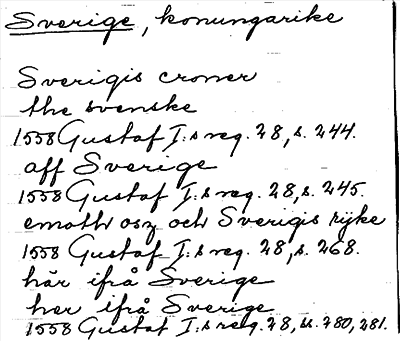 Sverige, konungarike
Sverigis croner
the svenske
1558 Gustaf I:s reg. 28, s. 244.
aff Sverige
1558 Gustaf I:s reg. 28, s. 245.
emoth osz och Sverigis rijke
1558 Gustaf I:s reg. 28, s. 268.
här ifrå Sverige
her ifrå Sverige
1558 Gustaf I:s reg. 28, ss. 280, 281.